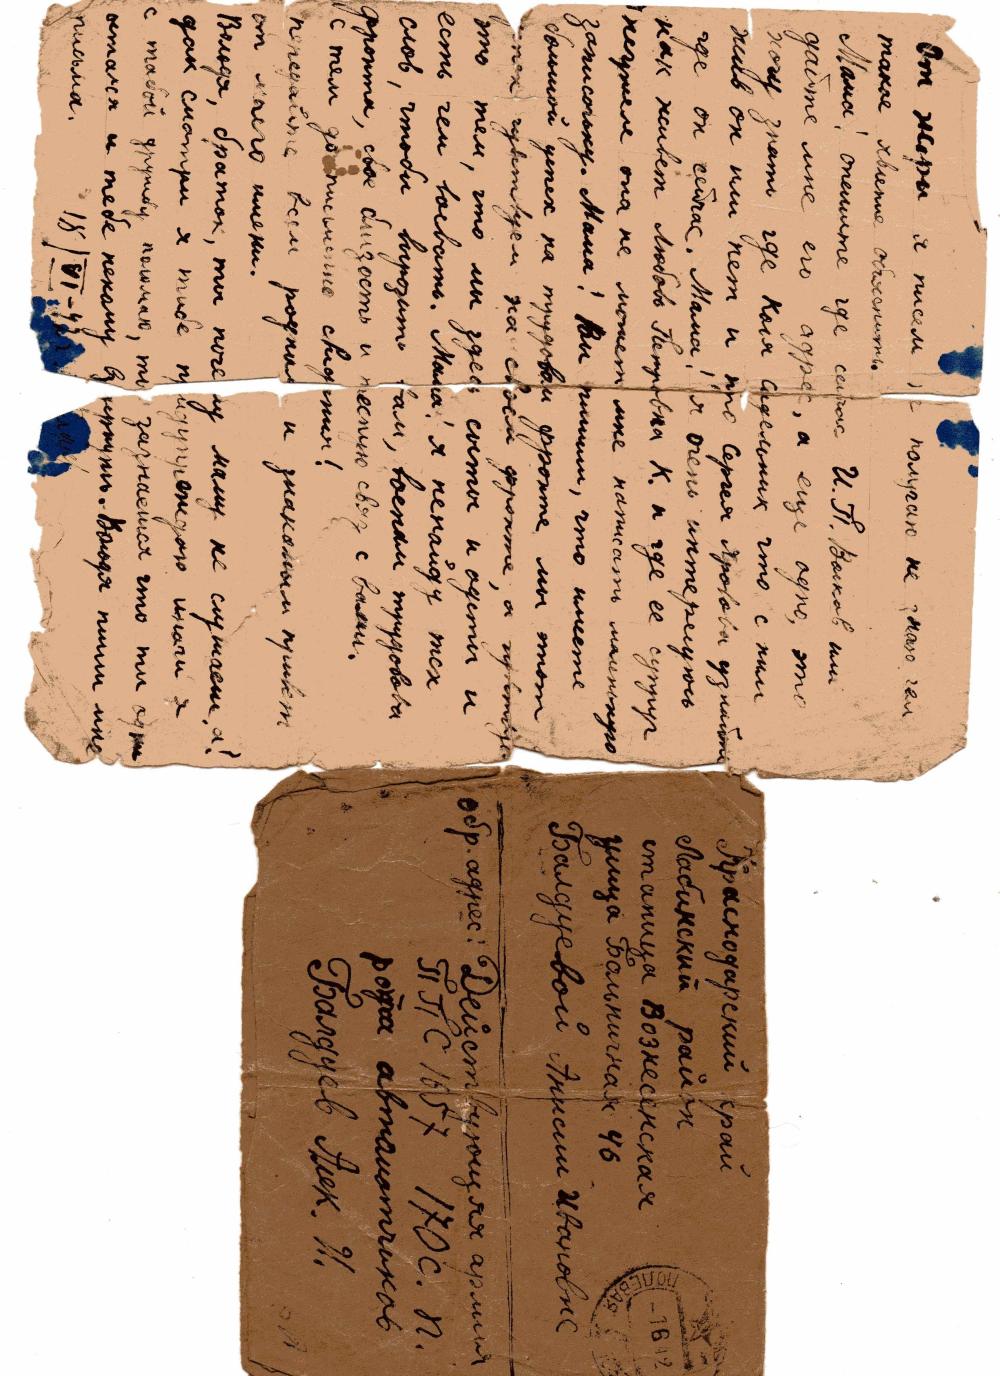 От Жоры я писем не получаю не знаю чем
такое явление объяснить.
Мама! опишите где сейчас И.П. Волков или
дайте мне его адрес, а еще одно, это
хочу знать где Коля Сидельник что с ним
жив он или нет и про Сергея Яровова узнайте
где он сейчас. Мама! я очень интересуюсь
как живет Любовь Петровна К. и где ее супруг
неужели она не может мне написать маленькую
записочку. Мама! Вы пишите, что имеете
большой успех на трудовом фронте мы тот
успех чувствуем на своем фронте, а чувствуем
это тем, что мы здесь сыты и одеты и
есть чем воевать. Мама! я ненайду тех
слов, чтобы выразить вам, военам трудового
фронта, свою близость и тесную связ с вами.
С тем до письменно свидания!
передайте всем родным и знакомым привет
от моего имени.
Володя, браток, ты почему маму не слушаеш!
дак смотри я тебе предупреждаю иначи я
с тобой дружбу поломаю, ты зазнаешся что ты один
остался и тебе некому вернуть. Володя пиши мне
письма.
18/VI-42
Краснодарский край
Лабинский район
станица Вознесенская
улица Больничная 46
Балдуевой Анисии Ивановне
обр. адрес: Действующяя армия
ППС 1657 170 с. п.
рота автоматчиков
Балдуев Алек. И.
ПОЛЕВАЯ